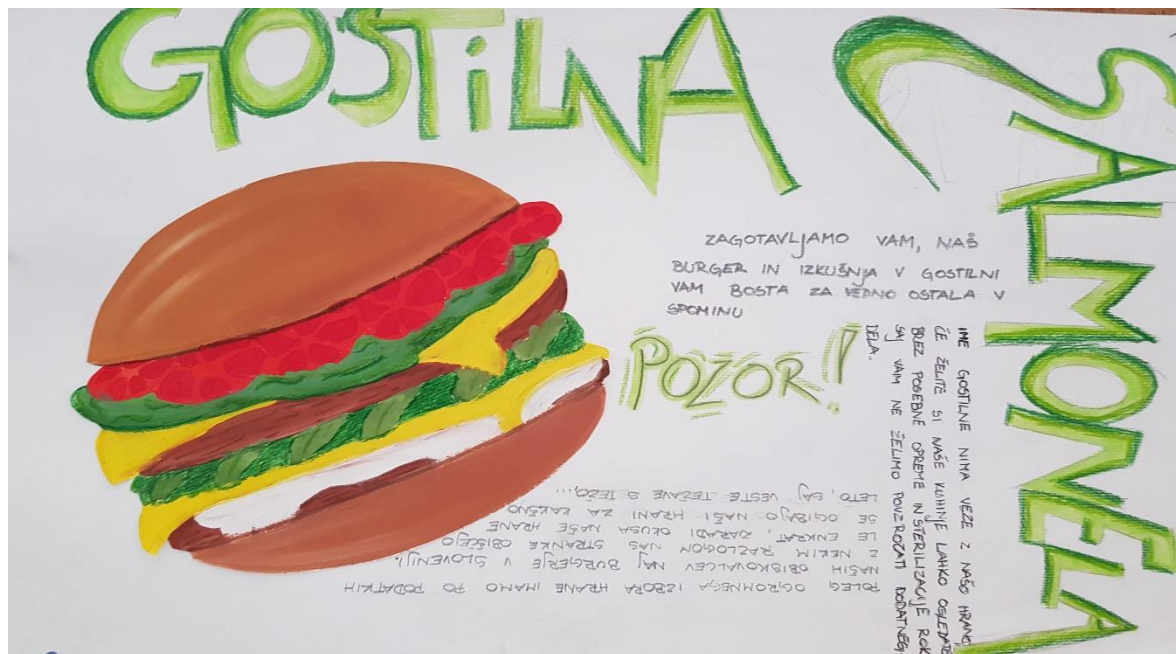 GOSTiLNA
SALMONELA
ZAGOTAVLJAMO VAM, NAŠ
BURGER IN IZKUŠNJA V GOSTILNI
VAM BOSTA ZA VEDNO OSTALA V
SPOMINU
POZOR!
IME GOSTILNE NIMA VEZE Z NAŠO HRANO,
ČE ŽELITE SI NAŠE KUHINJE LAHKO OGLEDATE
BREZ POSEBNE OPREME IN STERILIZACIJE ROK
SAJ VAM NE ŽELIMO POVZROČATI DODATNEG
DELA.
POLEG OGROMNEGA IZBORA HRANE IMAMO PO PODATKIH
NAŠIH OBISKOVALCEV NAJ BURGERJE V SLOVENIJI.
Z NEKIM RAZLOGOM NAS STRANKE OBIŠČEJO
LE ENKRAT, ZARADI OKUSA NAŠE HRANE
SE OGIBAJO NAŠI HRANI ZA KAKŠNO
LETO, SAJ VESTE TEŽAVE S TEŽO,...